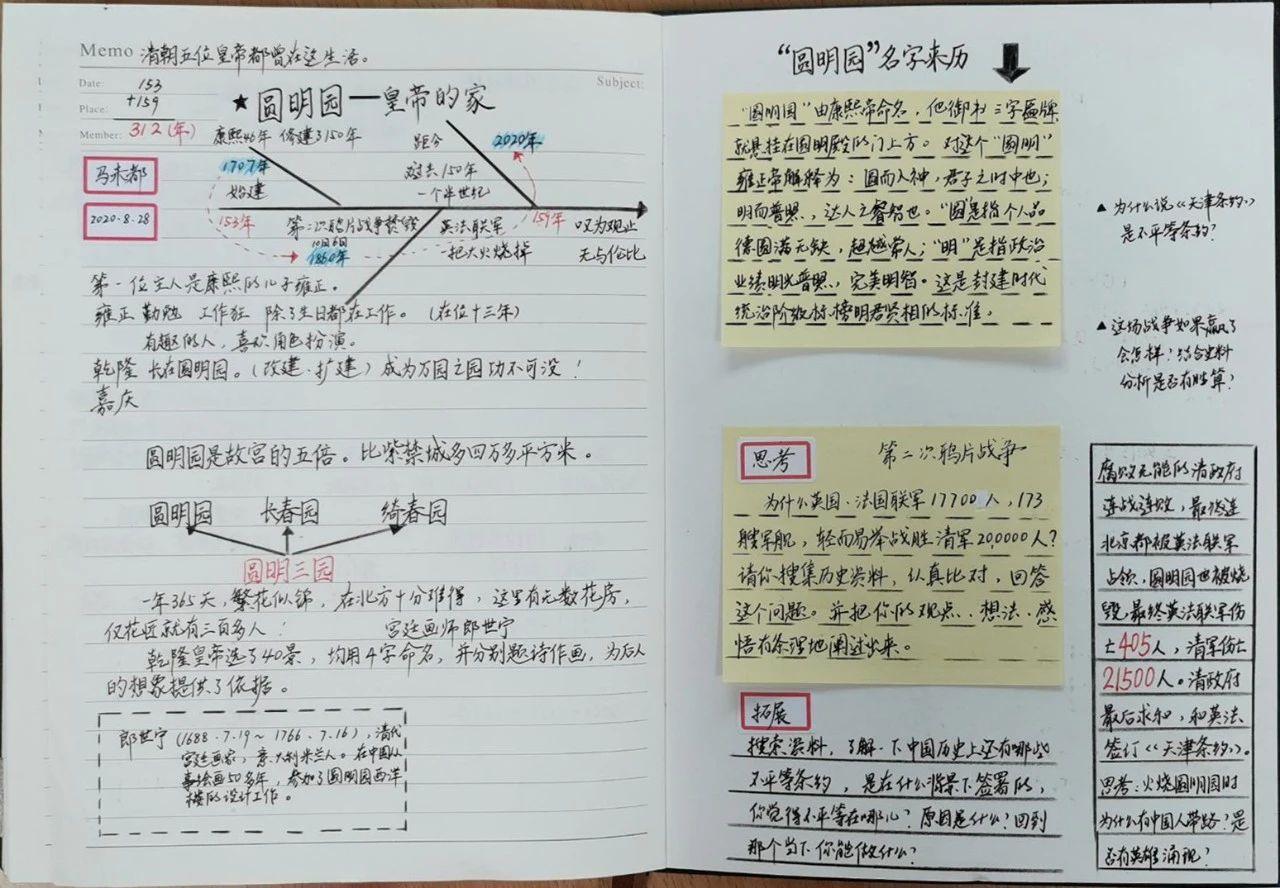 Memo 清朝五位皇帝都曾在这生活。
Date: 153
Subject:
Place: +159
Member: 312(年)
★圆明园—皇帝的家
康熙46年 修建了150年 距今 2020年
马未都
1707年 过去150年
始建 一个半世纪
2020.8.28
153年 第二次鸦片战争 英法联军 159年 叹为观止
10月6日
1860年 一把大火烧掉 无与伦比
第一位主人是康熙的儿子雍正。
雍正 勤勉 工作狂 除了生日都在工作。(在位十三年)
有趣的人,喜欢角色扮演。
乾隆 长在圆明园。(改建、扩建)成为万园之园功不可没!
嘉庆
圆明园是故宫的五倍。比紫禁城多四万多平方米。
圆明园 长春园 绮春园
圆明三园
一年365天,繁花似锦,在北方十分难得,这里有无数花房,
仅花匠就有三百多人! 宫廷画师郎世宁
乾隆皇帝选了40景,均用4字命名,并分别题诗作画,为后人
的想象提供了依据。
郎世宁(1688.7.19~1766.7.16),清代
宫廷画家,意大利米兰人。在中国从
事绘画50多年,参加了圆明园西洋
楼的设计工作。
“圆明园”名字来历
“圆明园”由康熙帝命名,他御书三字匾牌
就悬挂在圆明殿的门上方。对这个“圆明”
雍正帝解释为:圆而入神,君子之时中也;
明而普照,达人之睿智也。“圆”是指个人品
德圆满无缺,超越常人;“明”是指政治
业绩明光普照,完美明智。这是封建时代
统治阶级标榜明君贤相的标准。
▲为什么说《天津条约》
是不平等条约?
▲这场战争如果赢了
会怎样?结合史料
分析是否有胜算?
思考 第二次鸦片战争
为什么英国、法国联军17700人,173
艘军舰,轻而易举战胜清军200000人?
请你搜集历史资料,认真比对,回答
这个问题。并把你的观点、想法、感
悟有条理地阐述出来。
拓展
搜索资料,了解一下中国历史上还有哪些
不平等条约,是在什么背景下签署的,
你觉得不平等在哪儿?原因是什么?回到
那个当下你能做什么?
腐败无能的清政府
连战连败,最终连
北京都被英法联军
占领,圆明园也被烧
毁,最终英法联军伤
亡405人,清军伤亡
21500人。清政府
最后求和,和英法
签订《天津条约》。
思考:火烧圆明园时
为什么有中国人带路?是
否有英雄涌现?